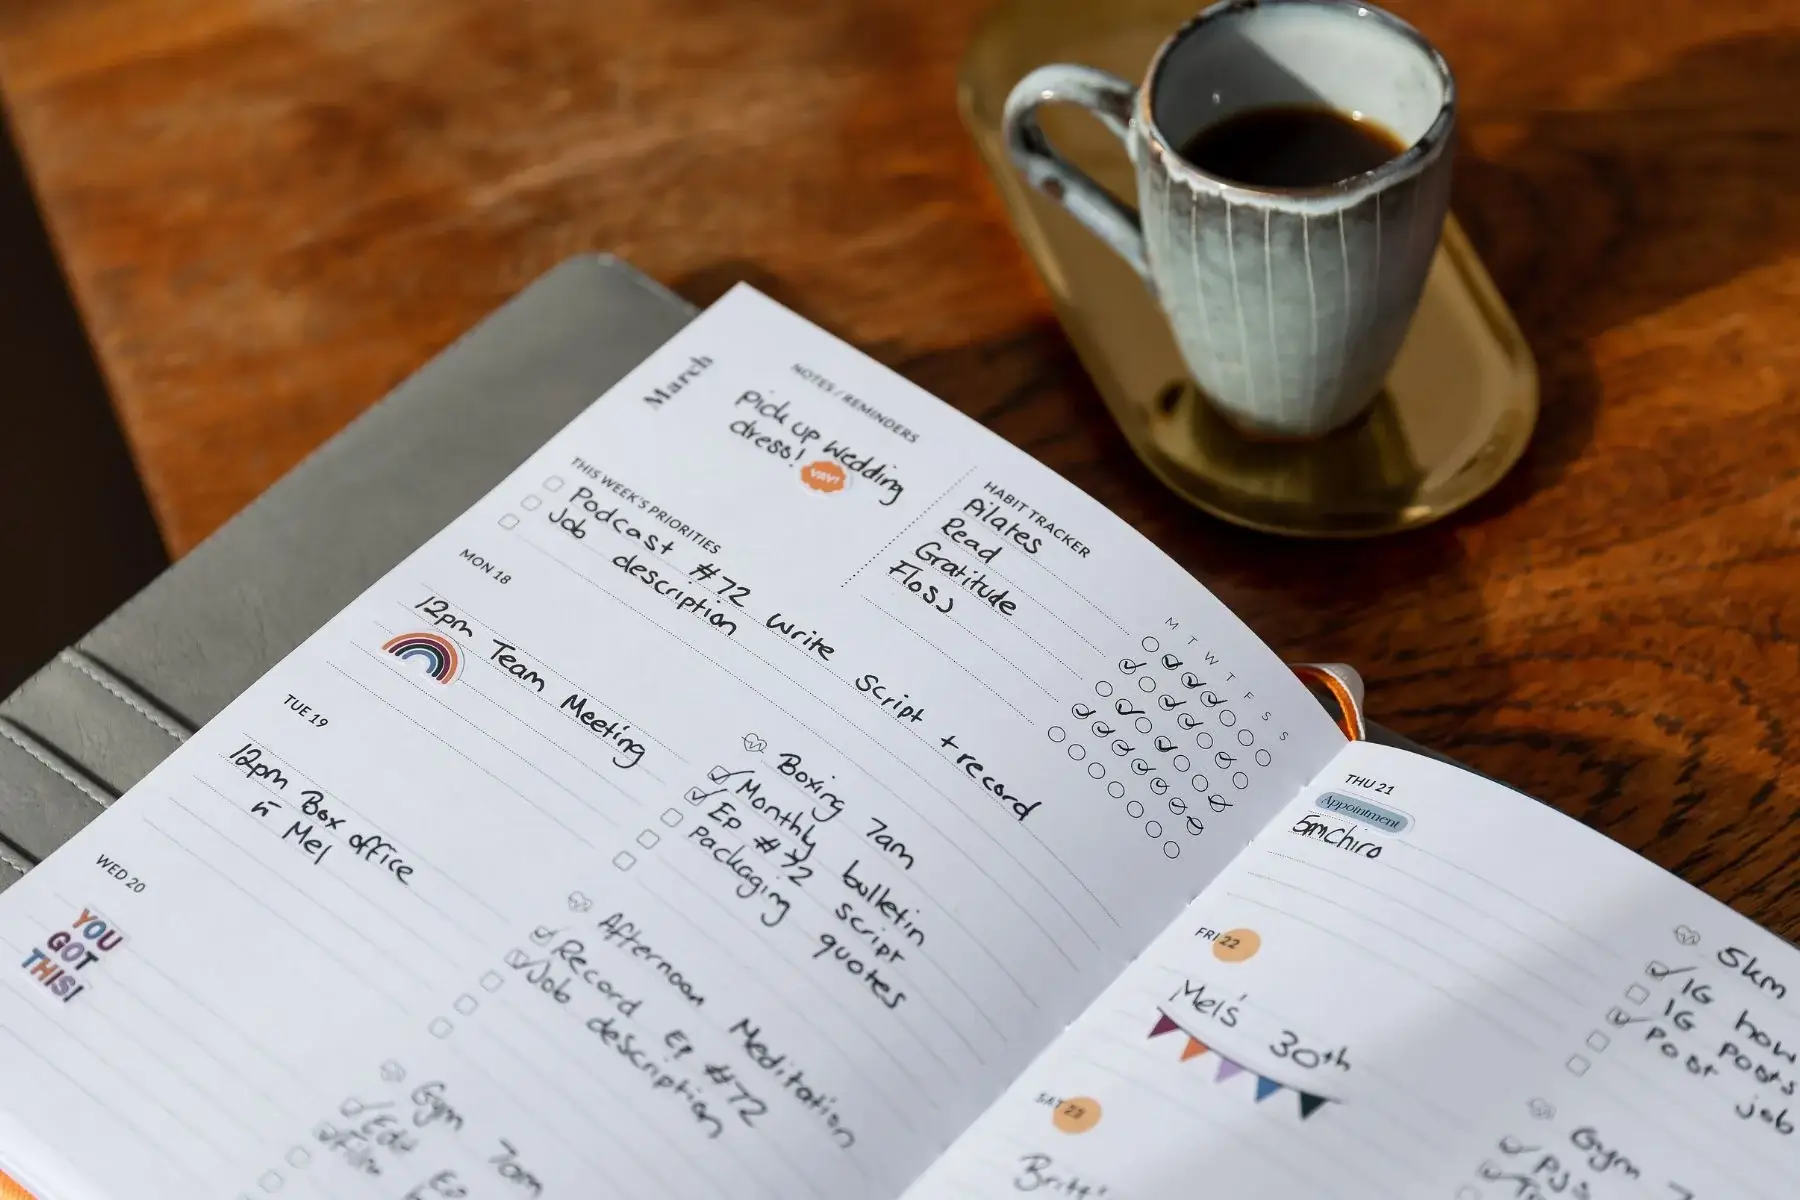 March
NOTES / REMINDERS
Pick up wedding
dress!
YAY!
HABIT TRACKER
M T W T F S S
Pilates
Read
Gratitude
Floss
THIS WEEK'S PRIORITIES
Podcast #72 write script + record
Job description
MON 18
12pm Team Meeting
Boxing 7am
Monthly bulletin
Ep #72 script
Packaging quotes
TUE 19
12pm Box office
w Mel
Afternoon Meditation
Record Ep #72
Job description
WED 20
YOU
GOT
THIS!
Gym 7am
Edit Ep
THU 21
Appointment
5pm Chiro
5km
IG how
IG posts
Post job
FRI 22
Mel's 30th
Gym
SAT 23